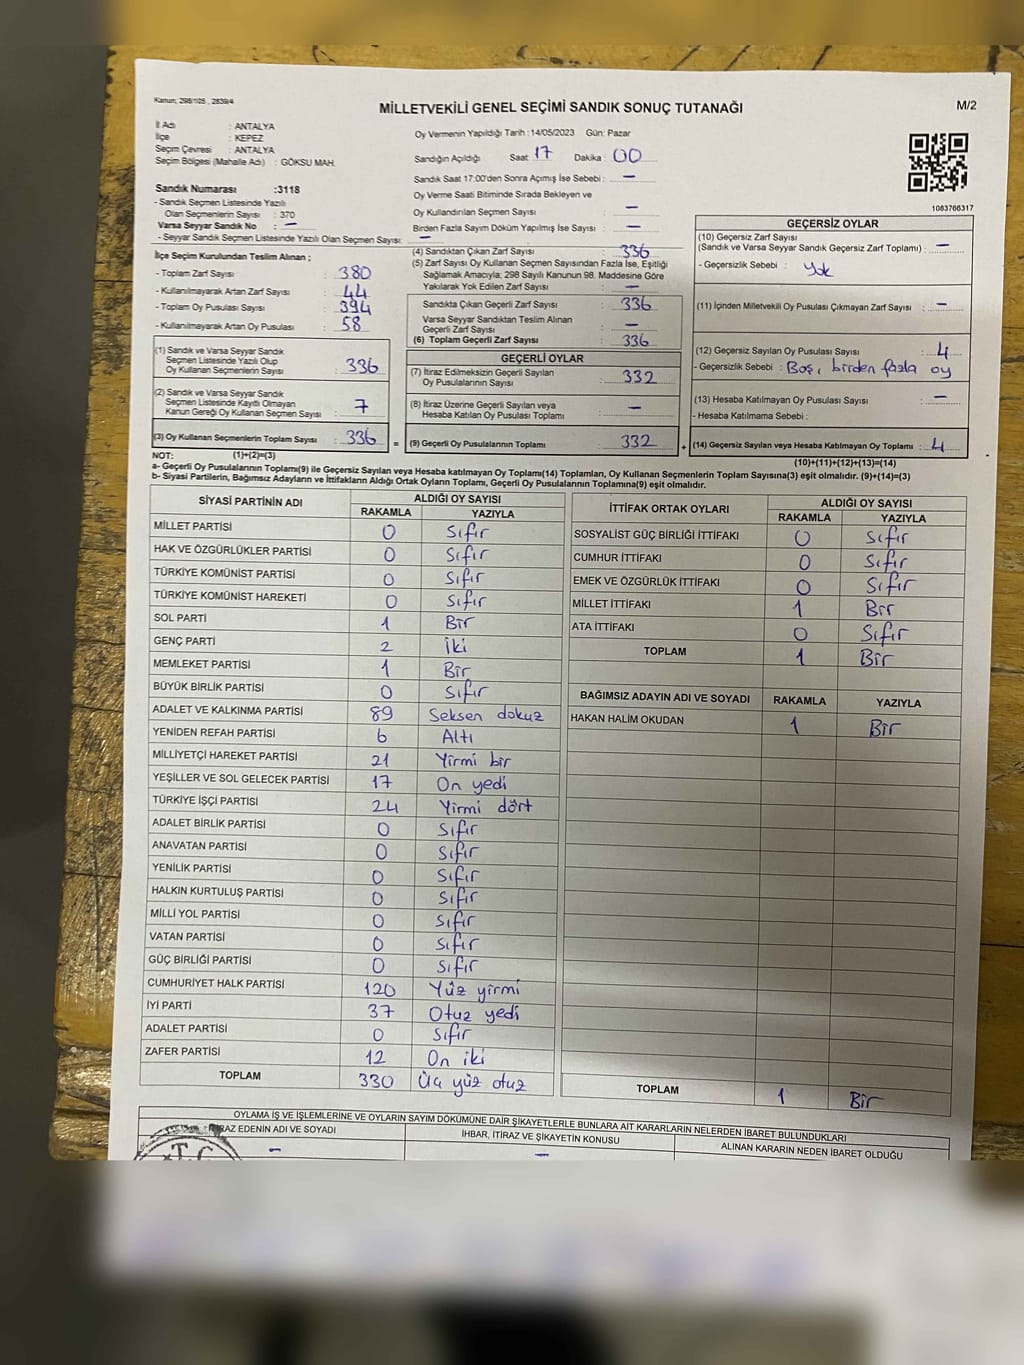 Kanun; 298/105 , 2839/4
MİLLETVEKİLİ GENEL SEÇİMİ SANDIK SONUÇ TUTANAĞI
M/2
İl Adı : ANTALYA
İlçe : KEPEZ
Seçim Çevresi : ANTALYA
Seçim Bölgesi (Mahalle Adı) : GÖKSU MAH.
Sandık Numarası :3118
- Sandık Seçmen Listesinde Yazılı
Olan Seçmenlerin Sayısı : 370
Varsa Seyyar Sandık No : —
- Seyyar Sandık Seçmen Listesinde Yazılı Olan Seçmen Sayısı: —
Oy Vermenin Yapıldığı Tarih :14/05/2023 Gün: Pazar
Sandığın Açıldığı Saat : 17 Dakika : 00
Sandık Saat 17:00'den Sonra Açmış İse Sebebi : —
Oy Verme Saati Bitiminde Sırada Bekleyen ve
Oy Kullandırılan Seçmen Sayısı : —
Birden Fazla Sayım Döküm Yapılmış İse Sayısı : —
1083766317
İlçe Seçim Kurulundan Teslim Alınan ;
- Toplam Zarf Sayısı : 380
- Kullanılmayarak Artan Zarf Sayısı : 44
- Toplam Oy Pusulası Sayısı : 394
- Kullanılmayarak Artan Oy Pusulası : 58
(1) Sandık ve Varsa Seyyar Sandık
Seçmen Listesinde Yazılı Olup
Oy Kullanan Seçmenlerin Sayısı : 336
(2) Sandık ve Varsa Seyyar Sandık
Seçmen Listesinde Kayıtlı Olmayan
Kanun Gereği Oy Kullanan Seçmen Sayısı : 7
(3) Oy Kullanan Seçmenlerin Toplam Sayısı : 336
(4) Sandıktan Çıkan Zarf Sayısı : 336
(5) Zarf Sayısı Oy Kullanan Seçmen Sayısından Fazla İse, Eşitliği
Sağlamak Amacıyla; 298 Sayılı Kanunun 98. Maddesine Göre
Yakılarak Yok Edilen Zarf Sayısı : —
Sandıkta Çıkan Geçerli Zarf Sayısı : 336
Varsa Seyyar Sandıktan Teslim Alınan
Geçerli Zarf Sayısı : —
(6) Toplam Geçerli Zarf Sayısı : 336
GEÇERLİ OYLAR
(7) İtiraz Edilmeksizin Geçerli Sayılan
Oy Pusulalarının Sayısı : 332
(8) İtiraz Üzerine Geçerli Sayılan veya
Hesaba Katılan Oy Pusulası Toplamı : —
= (9) Geçerli Oy Pusulalarının Toplamı : 332
GEÇERSİZ OYLAR
(10) Geçersiz Zarf Sayısı
(Sandık ve Varsa Seyyar Sandık Geçersiz Zarf Toplamı) : —
- Geçersizlik Sebebi : Yok
(11) İçinden Milletvekili Oy Pusulası Çıkmayan Zarf Sayısı : —
(12) Geçersiz Sayılan Oy Pusulası Sayısı : 4
- Geçersizlik Sebebi : Boş, birden fazla oy
(13) Hesaba Katılmayan Oy Pusulası Sayısı : —
- Hesaba Katılmama Sebebi :
+ (14) Geçersiz Sayılan veya Hesaba Katılmayan Oy Toplamı : 4
NOT: (1)+(2)=(3)
(10)+(11)+(12)+(13)=(14)
a- Geçerli Oy Pusulalarının Toplamı(9) ile Geçersiz Sayılan veya Hesaba katılmayan Oy Toplamı(14) Toplamları, Oy Kullanan Seçmenlerin Toplam Sayısına(3) eşit olmalıdır. (9)+(14)=(3)
b- Siyasi Partilerin, Bağımsız Adayların ve İttifakların Aldığı Ortak Oyların Toplamı, Geçerli Oy Pusulalarının Toplamına(9) eşit olmalıdır.
SİYASİ PARTİNİN ADI ALDIĞI OY SAYISI
RAKAMLA YAZIYLA
MİLLET PARTİSİ 0 Sıfır
HAK VE ÖZGÜRLÜKLER PARTİSİ 0 Sıfır
TÜRKİYE KOMÜNİST PARTİSİ 0 Sıfır
TÜRKİYE KOMÜNİST HAREKETİ 0 Sıfır
SOL PARTİ 1 Bir
GENÇ PARTİ 2 İki
MEMLEKET PARTİSİ 1 Bir
BÜYÜK BİRLİK PARTİSİ 0 Sıfır
ADALET VE KALKINMA PARTİSİ 89 Seksen dokuz
YENİDEN REFAH PARTİSİ 6 Altı
MİLLİYETÇİ HAREKET PARTİSİ 21 Yirmi bir
YEŞİLLER VE SOL GELECEK PARTİSİ 17 On yedi
TÜRKİYE İŞÇİ PARTİSİ 24 Yirmi dört
ADALET BİRLİK PARTİSİ 0 Sıfır
ANAVATAN PARTİSİ 0 Sıfır
YENİLİK PARTİSİ 0 Sıfır
HALKIN KURTULUŞ PARTİSİ 0 Sıfır
MİLLİ YOL PARTİSİ 0 Sıfır
VATAN PARTİSİ 0 Sıfır
GÜÇ BİRLİĞİ PARTİSİ 0 Sıfır
CUMHURİYET HALK PARTİSİ 120 Yüz yirmi
İYİ PARTİ 37 Otuz yedi
ADALET PARTİSİ 0 Sıfır
ZAFER PARTİSİ 12 On iki
TOPLAM 330 Üç yüz otuz
İTTİFAK ORTAK OYLARI ALDIĞI OY SAYISI
RAKAMLA YAZIYLA
SOSYALİST GÜÇ BİRLİĞİ İTTİFAKI 0 Sıfır
CUMHUR İTTİFAKI 0 Sıfır
EMEK VE ÖZGÜRLÜK İTTİFAKI 0 Sıfır
MİLLET İTTİFAKI 1 Bir
ATA İTTİFAKI 0 Sıfır
TOPLAM 1 Bir
BAĞIMSIZ ADAYIN ADI VE SOYADI RAKAMLA YAZIYLA
HAKAN HALİM OKUDAN 1 Bir
TOPLAM 1 Bir
OYLAMA İŞ VE İŞLEMLERİNE VE OYLARIN SAYIM DÖKÜMÜNE DAİR ŞİKAYETLERLE BUNLARA AİT KARARLARIN NELERDEN İBARET BULUNDUKLARI
RAZ EDENİN ADI VE SOYADI İHBAR, İTİRAZ VE ŞİKAYETİN KONUSU ALINAN KARARIN NEDEN İBARET OLDUĞU
— —
T.C